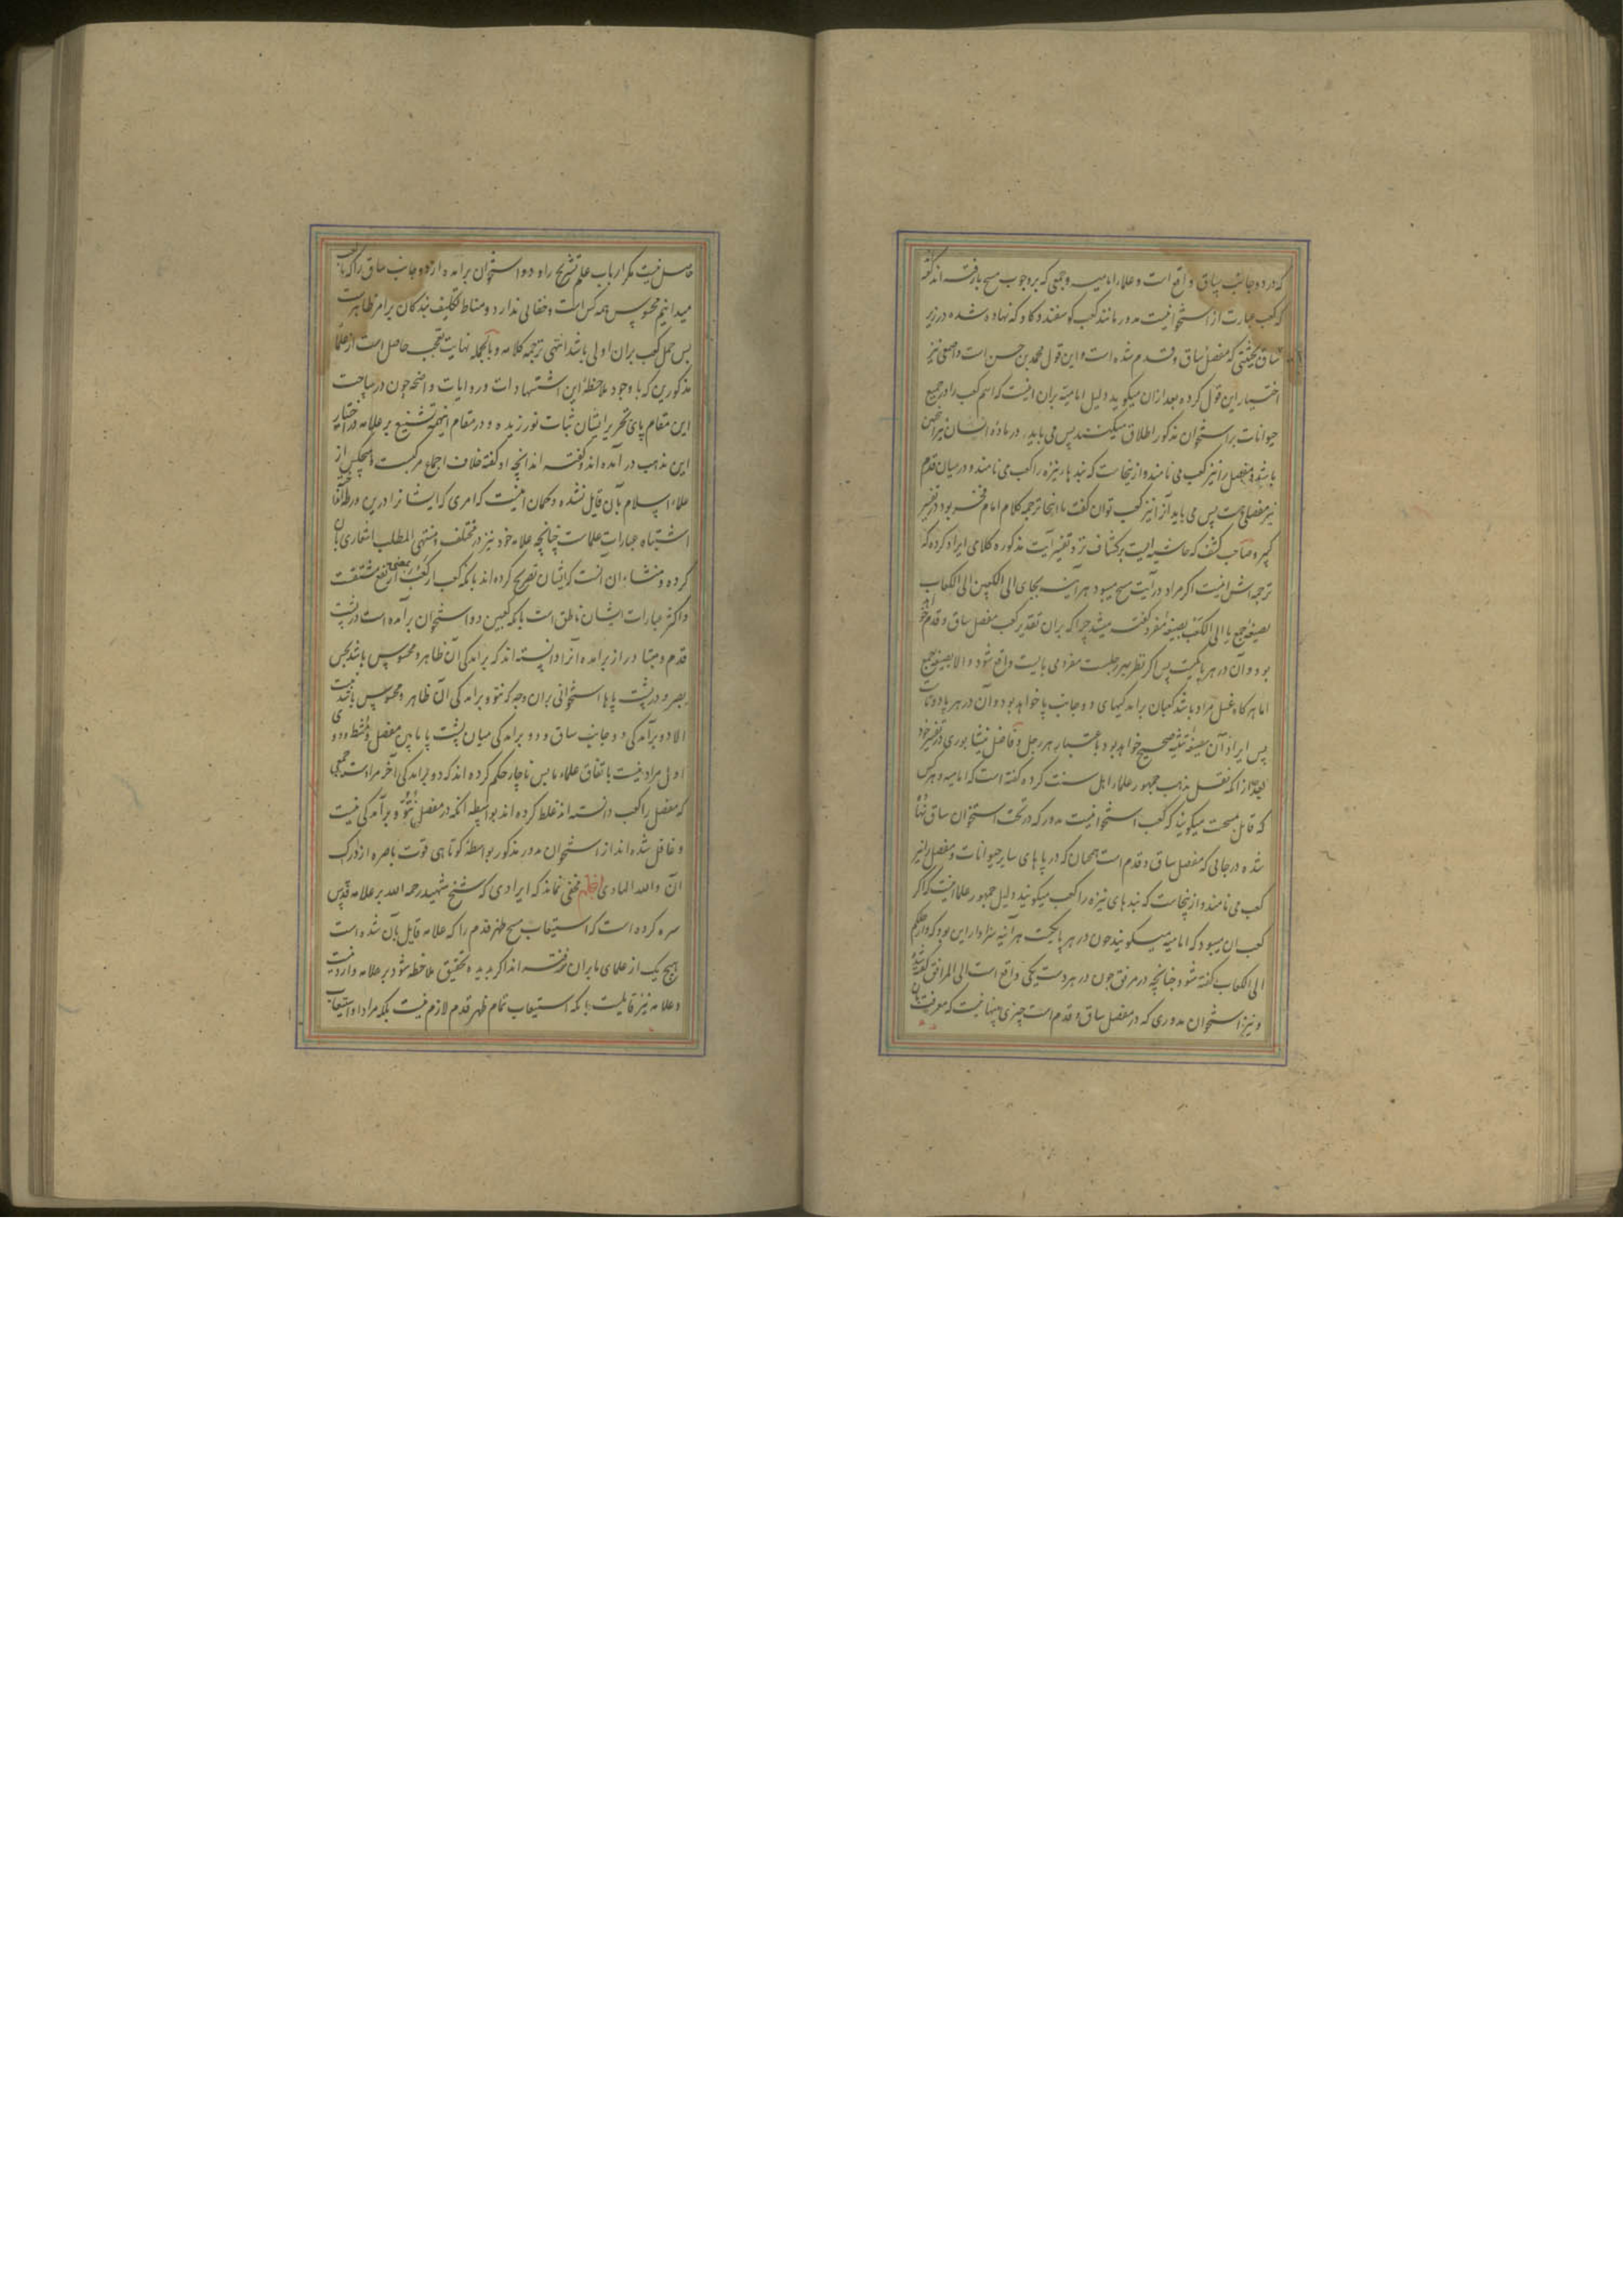 که در دو جانب ساق واقع است و علماء امامیه و جمعی که بر وجوب مسح پا رفته‌اند گفته
که کعب عبارت از استخوانیست مدور مانند کعب گوسفند و گاو که نهاده شده در زیر
ساق بحیثیتی که مفصل ساق و قدم شده است و این قول محمد بن حسن است و اصمعی نیز
اختیار این قول کرده بعد از ان میگوید دلیل امامیه بران اینست که اسم کعب را در جمیع
حیوانات بر استخوان مذکور اطلاق میکنند پس می باید در ماده انسان نیز همین
باشد و مفصل را نیز کعب می نامند و از ینجاست که بندهاء نیزه را کعب می نامند و در میان قدم
نیز مفصلی هست پس می باید آنرا نیز کعب توان گفت تا اینجا ترجمه کلام امام فخر بود در تفسیر
کبیر و صاحب کشف که حاشیه ایست بر کشاف نزد تفسیر آیت مذکوره کلامی ایراد کرده که
ترجمه اش اینست اگر مراد در آیت مسح میبود هر آینه بجای الی الکعبین الی الکعاب
بصیغه جمع یا الی الکعب بصیغه مفرد گفته میشد چرا که بران تقدیر کعب مفصل ساق و قدم خواهد
بود و آن در هر پا یکیست پس اگر نظر بهر رجلست مفرد می بایست واقع شود و الا بصیغه جمع
اما هر گاه غسل مراد باشد کعبان برآمدگیهای دو جانب پا خواهد بود و آن در هر پا دوتاست
پس ایراد آن بصیغه تثنیه صحیح خواهد بود باعتبار هر رجل و فاضل نیشابوری در تفسیر خود
بعد از انکه نقل مذهب جمهور علماء اهل سنت کرده گفته است که امامیه و هر کس
که قایل بمسحت میگویند که کعب استخوانیست مدور که در تحت استخوان ساق نهاده
شده در جائی که مفصل ساق و قدم است همچنان که در پاهای سایر حیوانات و مفصل را نیز
کعب می نامند و از ینجاست که بندهای نیزه را کعب میگویند و دلیل جمهور علما اینست که اگر
کعب ان میبود که امامیه میگویند چون در هر پا یکیست هر آینه سزاوار این بود که وارجلکم
الی الکعاب گفته شود چنانچه در مرفق چون در هر دست یکی واقع است الی المرافق گفته شده
و نیز استخوان مدوری که در مفصل ساق و قدم است چیزی پنهانیست که معرفت آن
حاصل نیست مگر ارباب علم تشریح را و دو استخوان برآمده از دو جانب ساق را که ما کعب
میدانیم محسوس همه کس است و خفائی ندارد و مناط تکلیف بندگان بر امر ظاهرست
پس حمل کعب بران اولی باشد انتهی ترجمه کلامه و بالجمله نهایت تعجب حاصل است از علماء
مذکورین که با وجود ملاحظه این استشهادات و روایات واضحه چون در مباحث
این مقام پای تحریر ایشان ثبات نورزیده و در مقام اینهمه تشنیع بر علامه در اختیار
این مذهب در آمده اند و گفته اند آنچه او گفته خلاف اجماع مرکبست و هیچکس از
علماء اسلام بآن قایل نشده و گمان اینست که امری که ایشانرا درین ورطه انداخته
اشتباه عبارات علماست چنانچه علامه خود نیز در مختلف و منتهی المطلب اشعاری بآن
کرده و منشاء ان آنست که ایشان تصریح کرده اند بانکه کعب از کعب بمعنی ارتفع مشتقست
و اکثر عبارات ایشان ناطق است بانکه کعبین دو استخوان برآمده است در پشت
قدم و متبادر از برآمده آنرا دانسته اند که برآمدگی آن ظاهر و محسوس باشد بحس
بصر و در پشت پاها استخوانی بران وجه که نتو و برآمدگی آن ظاهر و محسوس باشد نیست
الا دو برآمدگی دو جانب ساق و دو برآمدگی میان پشت پا مابین مفصل و مشط و دو
اول مراد نیست باتفاق علماء ما پس ناچار حکم کرده اند که دو برآمدگی آخر مراد است و جمعی
که مفصل را کعب دانسته اند غلط کرده اند بواسطه انکه در مفصل نتو و برآمدگی نیست
و غافل شده اند از استخوان مدور مذکور بواسطه کوتاهی قوت باصره از درک
آن والله الهادی مخفی نماند که ایرادی که شیخ شهید رحمه الله بر علامه قدس
سره کرده است که استیعاب مسح ظهر قدم را که علامه قایل بآن شده است
هیچ یک از علمای ما بران نرفته اند اگر بدیده تحقیق ملاحظه شود بر علامه وارد نیست
و علامه نیز قایلست بانکه استیعاب تمام ظهر قدم لازم نیست بلکه مراد او استیعاب